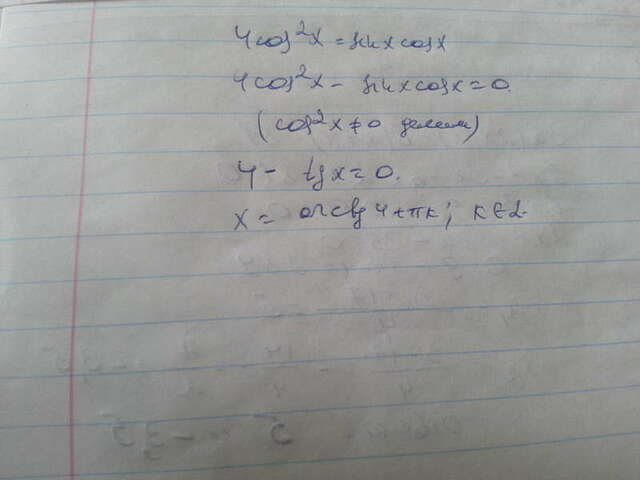 4cos²x = sinxcosx
4cos²x - sinxcosx = 0.
(cos²x ≠ 0 делим)
4 - tgx = 0.
x = arctg 4 + πк; к ∈ Z.